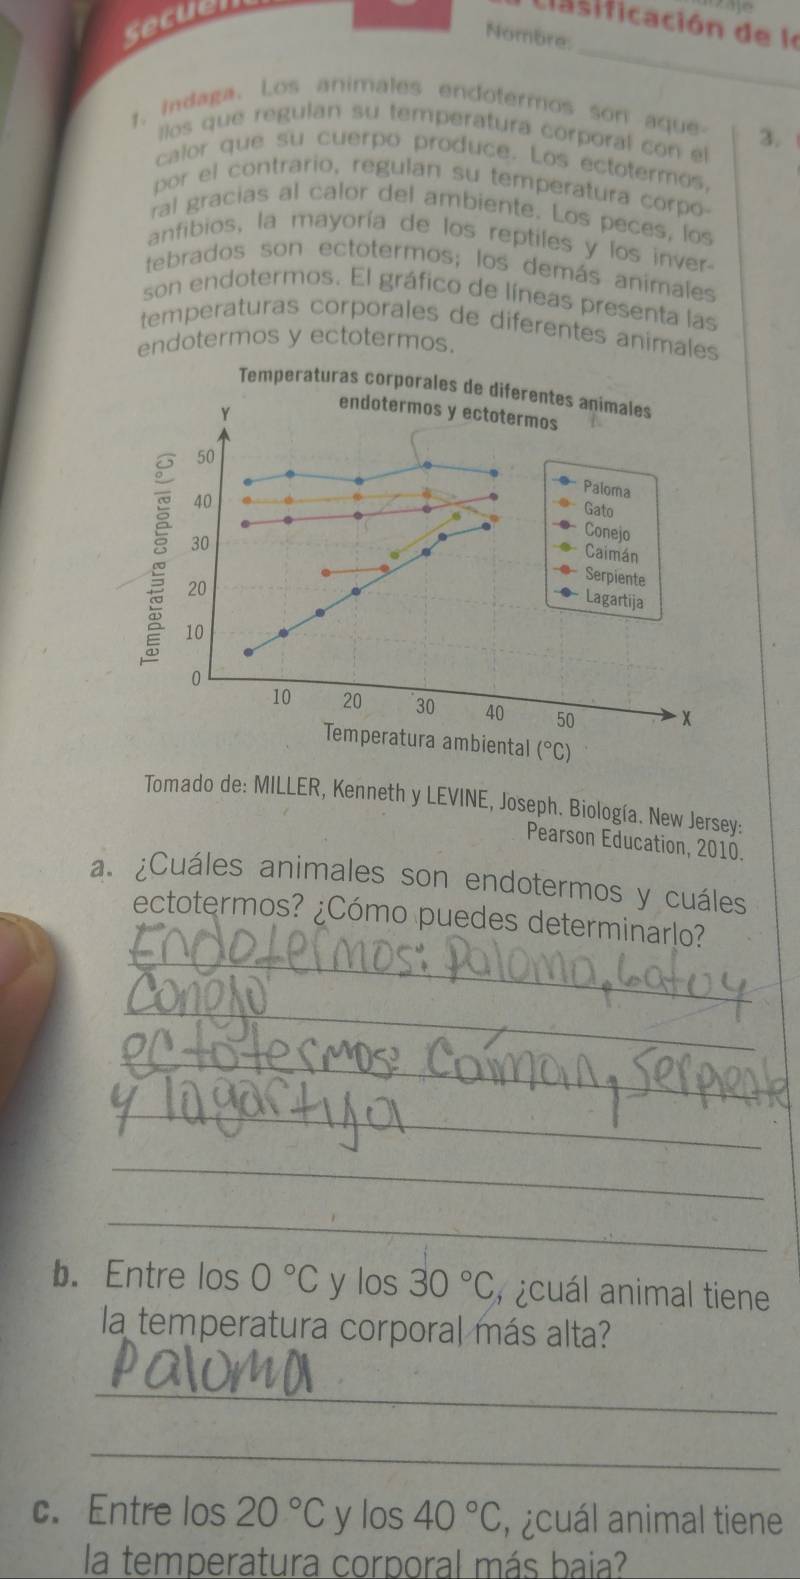 clasificación de lo
Nombre:
1. Indaga. Los animales endotermos son aque-
llos que regulan su temperatura corporal con el
calor que su cuerpo produce. Los ectotermos,
por el contrario, regulan su temperatura corpo-
ral gracias al calor del ambiente. Los peces, los
anfibios, la mayoría de los reptiles y los inver-
tebrados son ectotermos; los demás animales
son endotermos. El gráfico de líneas presenta las
temperaturas corporales de diferentes animales
endotermos y ectotermos.
3.
Temperaturas corporales de diferentes animales
endotermos y ectotermos
Y
Temperatura corporal (°C)
50
40
30
20
10
0
Paloma
Gato
Conejo
Caimán
Serpiente
Lagartija
10 20 30 40 50 X
Temperatura ambiental (°C)
Tomado de: MILLER, Kenneth y LEVINE, Joseph. Biología. New Jersey:
Pearson Education, 2010.
a. ¿Cuáles animales son endotermos y cuáles
ectotermos? ¿Cómo puedes determinarlo?
Endotermos: paloma, Gato y
Conejo
ectotermos: Caiman, serpiente
y lagartija
b. Entre los 0 °C y los 30 °C, ¿cuál animal tiene
la temperatura corporal más alta?
Paloma
c. Entre los 20 °C y los 40 °C, ¿cuál animal tiene
la temperatura corporal más baja?